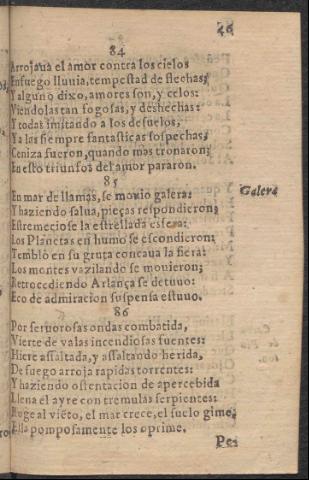 46
84
Arrojaua el amor contra los cielos
En fuego lluuia, tempestad de flechas;
Y alguno dixo, amores son, y celos:
Viendolas tan fogosas, y deshechas:
Y todas imitando a los desuelos,
Ya las siempre fantasticas sospechas,
Ceniza fueron, quando mas tronaron;
En esto triunfos del amor pararon.
85
En mar de llamas, se mouio galera:
Galera
Y haziendo salua, pieças respondieron;
Estremeciose la estrellada esfera:
Los Planetas en humo se escondieron;
Temblò en su gruta concaua la fiera:
Los montes vazilando se mouieron;
Retrocediendo Arlança se detuuo:
Eco de admiracion suspensa estuuo.
86
Por feruorosas ondas combatida,
Vierte de valas incendiosas fuentes:
Hiere assaltada, y assaltando herida,
De fuego arroja rapidas torrentes:
Y haziendo ostentacion de apercebida
Llena el ayre con tremulas serpientes:
Ruge al viẽto, el mar crece, el suelo gime,
Ella pomposamente los oprime.
Pe-